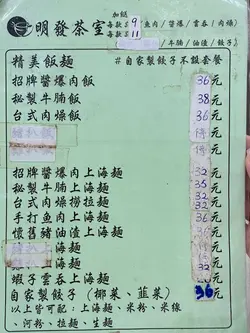 加餸
明發茶室 每款 9 (魚肉/醬爆/雲吞/肉燥)
每款 11 /牛腩/油渣/餃子)
精美飯麵 #自家製餃子不設套餐
招牌醬爆肉飯 36元
秘製牛腩飯 38元
台式肉燥飯 36元
停元
元
招牌醬爆肉上海麵 32元
秘製牛腩上海麵 35元
台式肉燥撈拉麵 32元
手打魚肉上海麵 36元
懷舊豬油渣上海麵 36元
海麵 停元
海麵 32元
蝦子雲吞上海麵
自家製餃子(椰菜、韮菜) 36元
以上皆可配:上海麵、米粉、米線
、河粉、拉麵、生麵